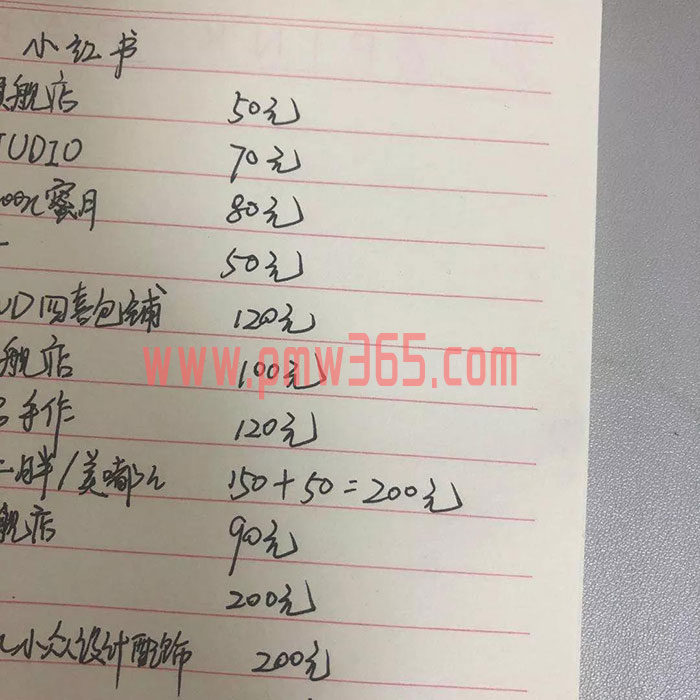 小红书
旗舰店 50元
TUDIO 70元
moon蜜月 80元
50元
UD四喜包铺 120元
舰店 100元
www.pmw365.com
手作 120元
二胖/美嘟儿 150+50=200元
舰店 90元
200元
小众设计配饰 200元